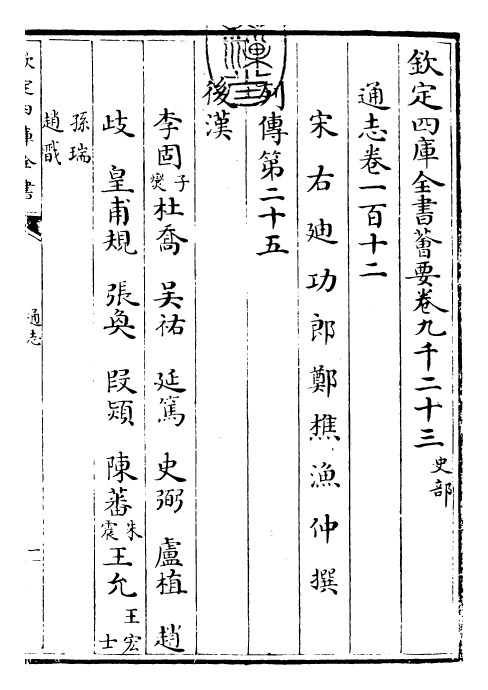 欽定四庫全書薈要卷九千二十三 史部
通志卷一百十二
宋右廸功郎鄭樵漁仲撰
列傳第二十五
後漢
李固 子燮 杜喬 吳祐 延篤 史弼 盧植 趙
歧 皇甫規 張奐 段熲 陳蕃 朱震 王允 王宏 士
孫瑞
趙戩
欽定四庫全書
通志
一